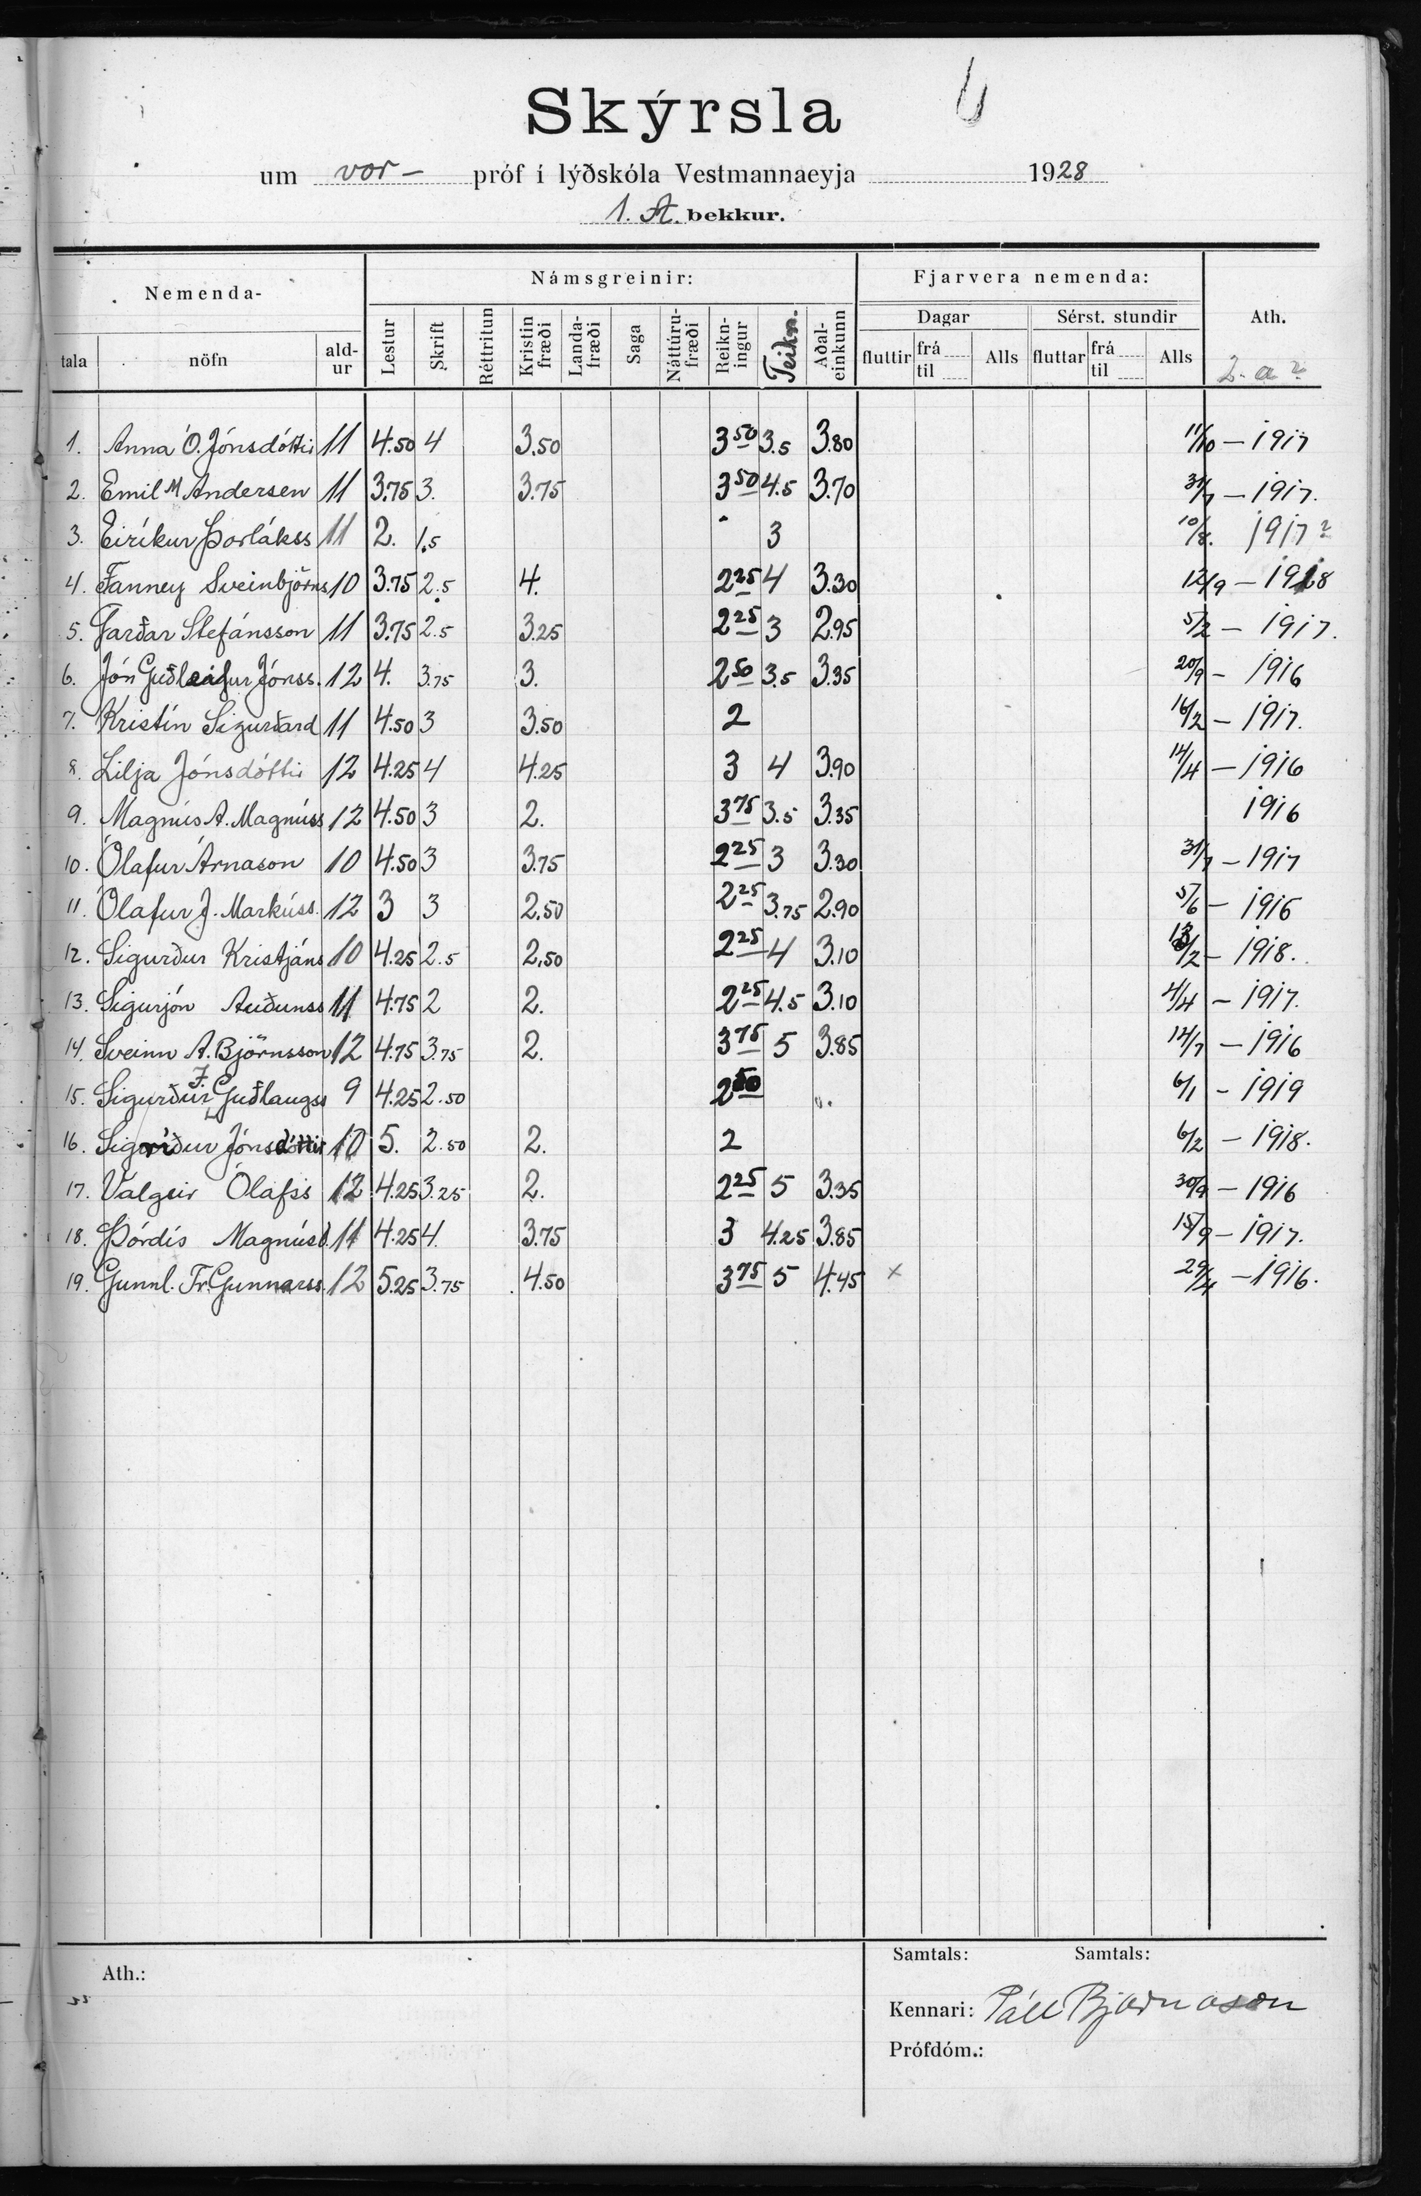 Skýrsla
um vor- próf í lýðskóla Vestmannaeyja 1928
1. A. bekkur.
Nemenda- Námsgreinir: Fjarvera nemenda: Ath.
Dagar Sérst. stundir
tala nöfn ald-ur Lestur Skrift Réttritun Kristin fræði Landa-fræði Saga Náttúru-fræði Reikn-ingur Teikn. Aðal-einkunn fluttir frá til Alls fluttar frá til Alls 2. a ?
1. Anna Ó. Jónsdóttir 11 4.50 4 3.50 3 50 3.5 3.80 11/10 - 1917
2. Emil M Andersen 11 3.75 3. 3.75 3 50 4.5 3.70 31/7 - 1917.
3. Eiríkur Þorlákss 11 2. 1.5 3 10/8. 1917?
4. Fanney Sveinbjörns 10 3.75 2.5 4. 2 25 4 3.30 12/9 - 1918
5. Garðar Stefánsson 11 3.75 2.5 3.25 2 25 3 2.95 5/2 - 1917.
6. Jón Guðleifur Jónss. 12 4. 3.75 3. 2 50 3.5 3.35 20/9 - 1916
7. Kristín Sigurðard 11 4.50 3 3.50 2 16/2 - 1917.
8. Lilja Jónsdóttir 12 4.25 4 4.25 3 4 3.90 14/4 - 1916
9. Magnús A. Magnúss 12 4.50 3 2. 3 75 3.5 3.35 1916
10. Ólafur Árnason 10 4.50 3 3.75 2 25 3 3.30 31/7 - 1917
11. Ólafur J. Markúss. 12 3 3 2.50 2 25 3.75 2.90 5/6 - 1916
12. Sigurður Kristjáns 10 4.25 2.5 2.50 2 25 4 3.10 13/2 - 1918.
13. Sigurjón Auðunss 11 4.75 2 2. 2 25 4.5 3.10 4/4 - 1917.
14. Sveinn A. Björnsson 12 4.75 3.75 2. 3 75 5 3.85 12/7 - 1916
15. Sigurður F. Guðlaugss 9 4.25 2.50 2 50 6/1 - 1919
16. Sigríður Jónsdóttir 10 5. 2.50 2. 2 6/2 - 1918.
17. Valgeir Ólafss 12 4.25 3.25 2. 2 25 5 3.35 30/9 - 1916
18. Þórdís Magnúsd. 11 4.25 4. 3.75 3 4.25 3.85 15/9 - 1917.
19. Gunnl. Fr. Gunnarss. 12 5.25 3.75 4.50 3 75 5 4.45 x 29/4 - 1916.
Samtals: Samtals:
Ath.:
Kennari: Páll Bjarnason
Prófdóm.: